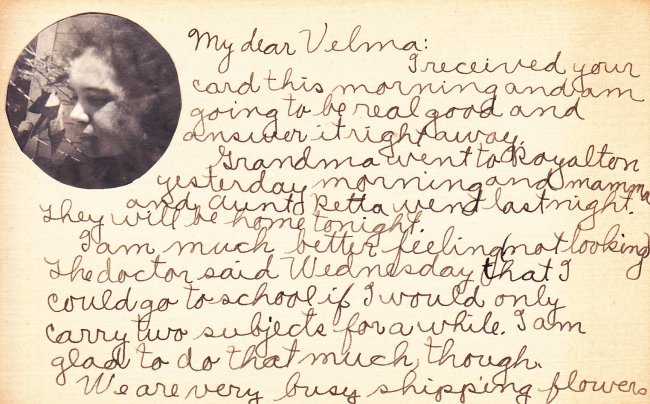 My dear Velma:
I received your
card this morning and am
going to be real good and
answer it right away.
Grandma went to Royalton
yesterday morning and mamma
and aunt Retta went last night.
They will be home tonight.
I am much better feeling (not looking)
The doctor said Wednesday that I
could go to school if I would only
carry two subjects for a while. I am
glad to do that much, though.
We are very busy shipping flowers